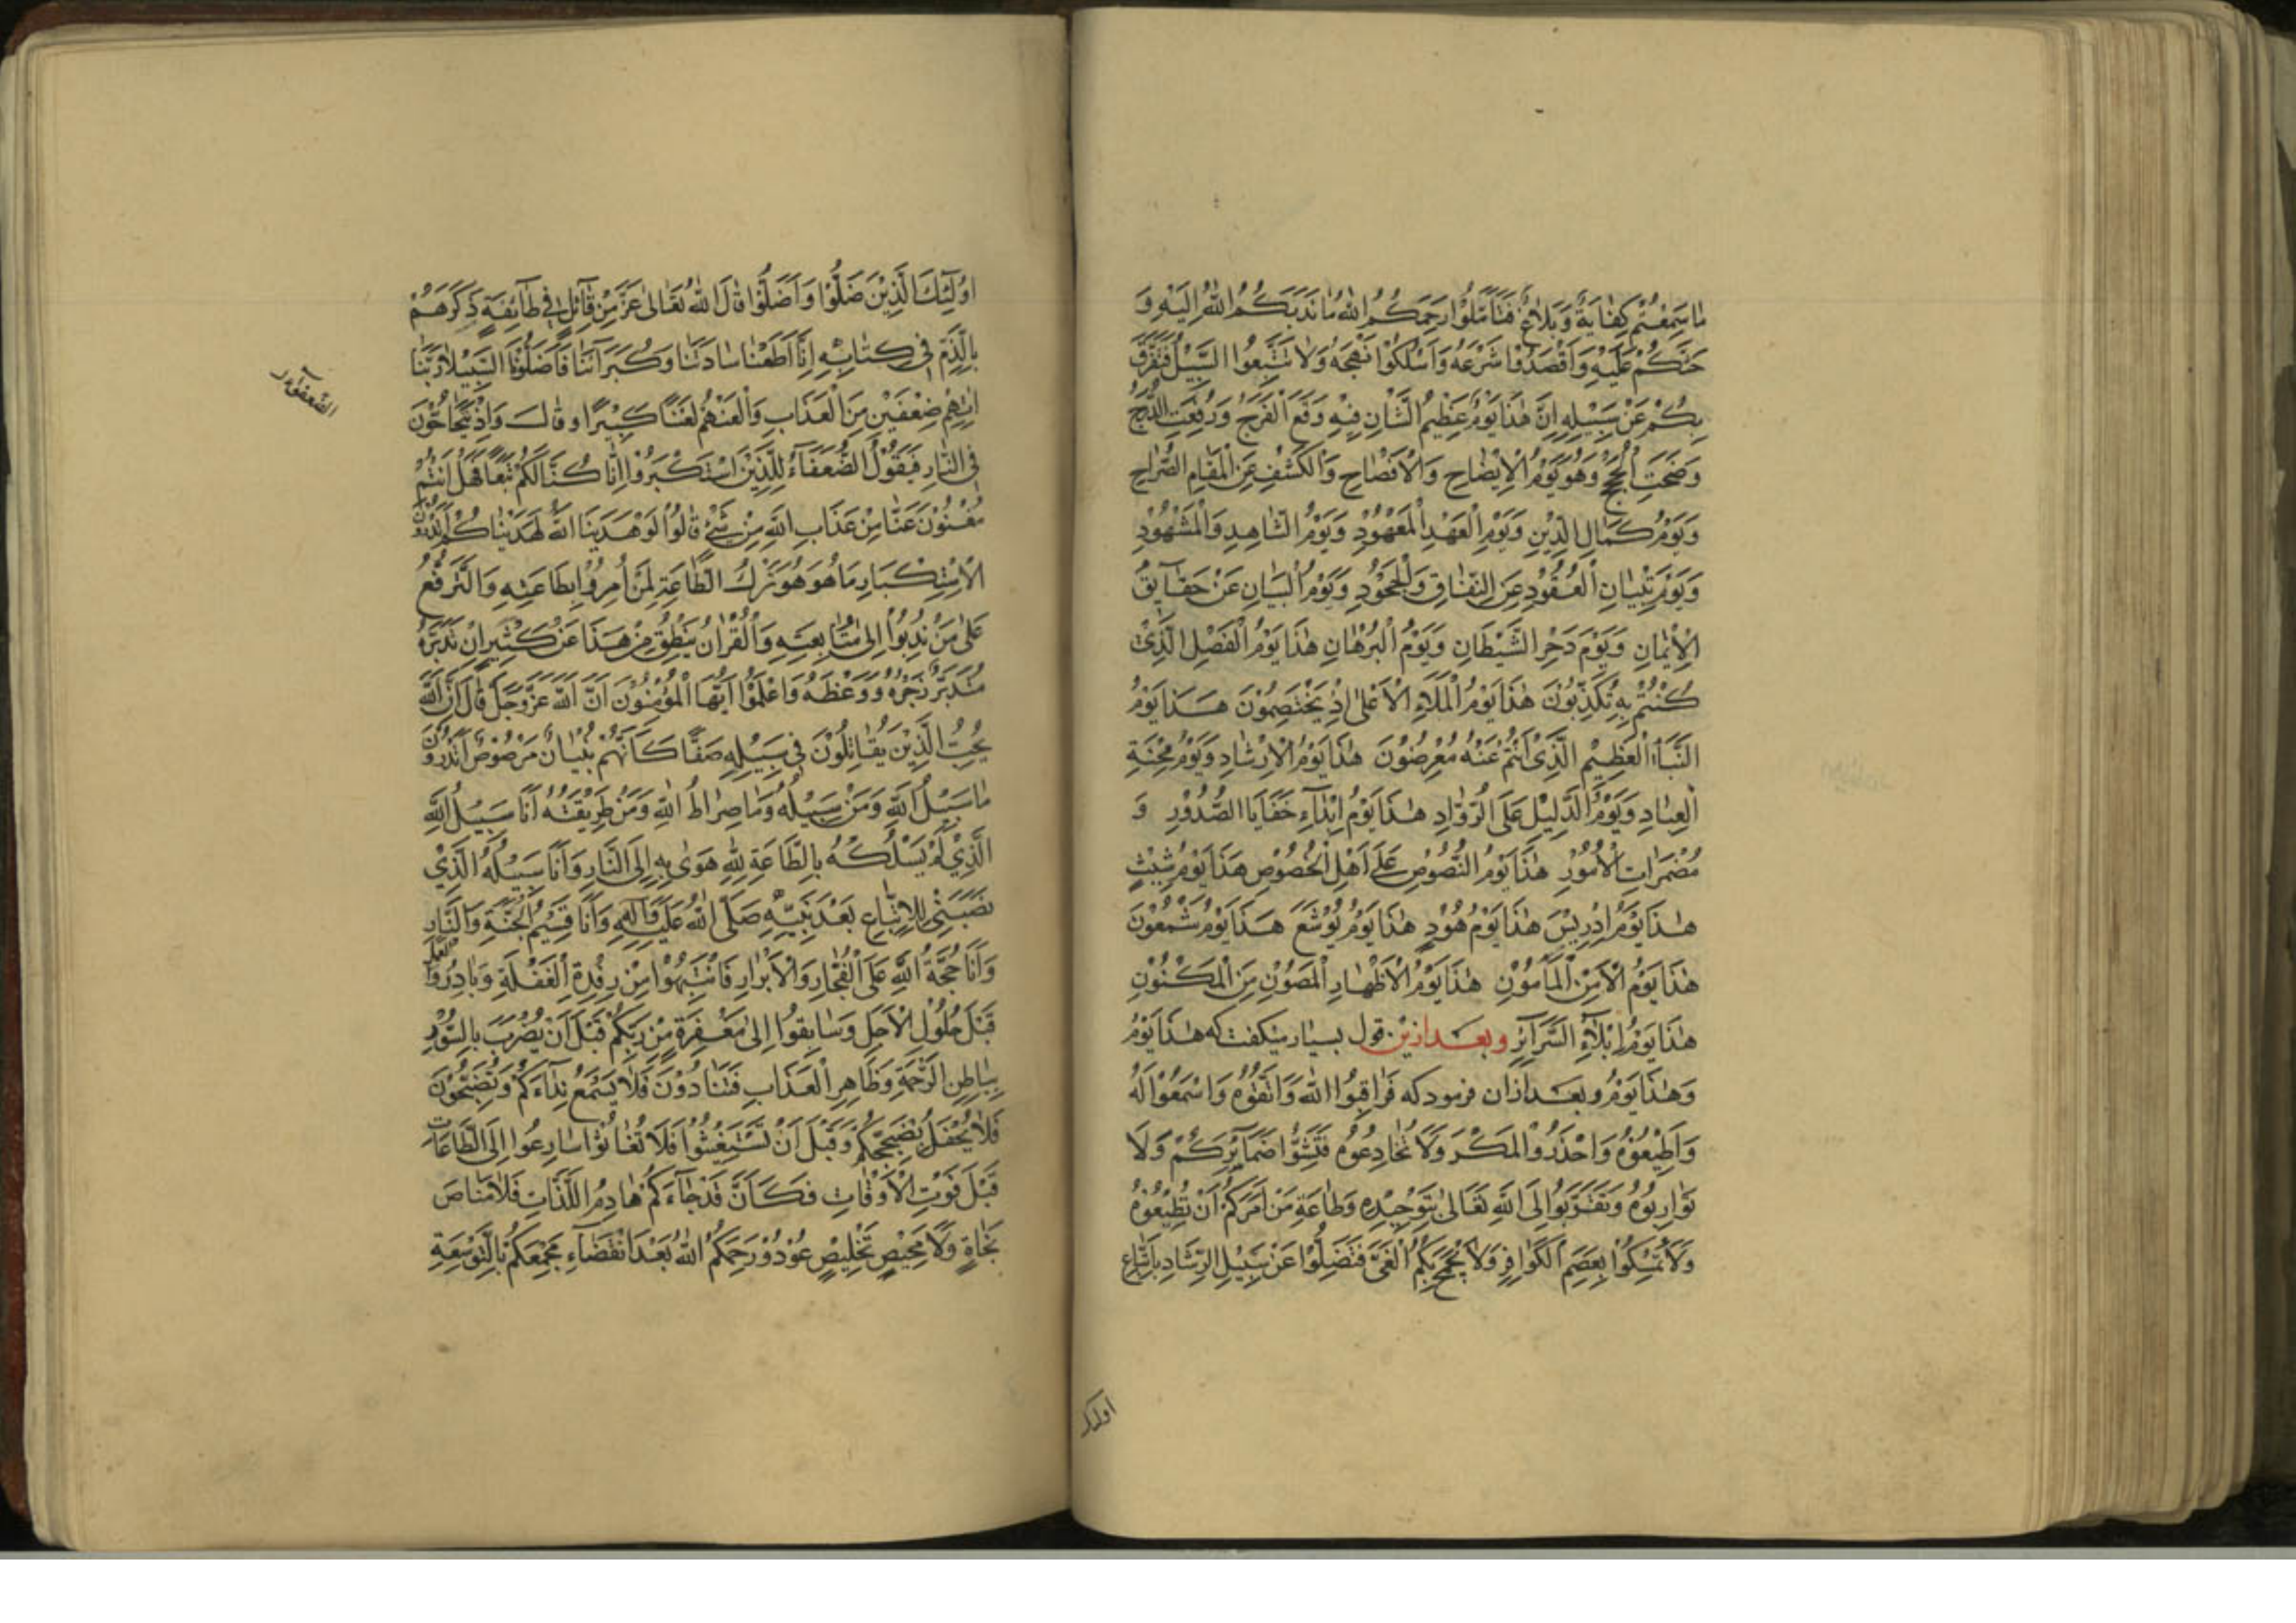 ما سَمِعْتُمْ كِفَايَةٌ وَبَلَاغٌ فَتَأَمَّلُوا رَحِمَكُمُ اللهُ مَا نَدَبَكُمُ اللهُ اِلَيْهِ وَ
حَثَّكُمْ عَلَيْهِ وَاقْصُدُوا شَرْعَهُ وَاسْلُكُوا نَهْجَهُ وَلَا تَتَّبِعُوا السُّبُلَ فَتَفَرَّقَ
بِكُمْ عَنْ سَبِيلِهِ اِنَّ هٰذَا يَوْمٌ عَظِيمُ الشَّانِ فِيهِ وَقَعَ الْفَرَجُ وَرُفِعَتِ الدَّرَجُ
وَضَحَتِ الْحُجَجُ وَهُوَ يَوْمُ الْاِيْضَاحِ وَالْاِفْصَاحِ وَالْكَشْفِ عَنِ الْمَقَامِ الصُّرَاحِ
وَيَوْمُ كَمَالِ الدِّيْنِ وَيَوْمُ الْعَهْدِ الْمَعْهُوْدِ وَيَوْمُ الشَّاهِدِ وَالْمَشْهُوْدِ
وَيَوْمُ تِبْيَانِ الْعُقُوْدِ عَنِ النِّفَاقِ وَالْجُحُوْدِ وَيَوْمُ الْبَيَانِ عَنْ حَقَآيِقِ
الْاِيْمَانِ وَيَوْمُ دَحْرِ الشَّيْطَانِ وَيَوْمُ الْبُرْهَانِ هٰذَا يَوْمُ الْفَصْلِ الَّذِيْ
كُنْتُمْ بِهِ تُكَذِّبُوْنَ هٰذَا يَوْمُ الْمَلَاءِ الْاَعْلٰى اِذْ يَخْتَصِمُوْنَ هٰذَا يَوْمُ
النَّبَأِ الْعَظِيْمِ الَّذِيْ اَنْتُمْ عَنْهُ مُعْرِضُوْنَ هٰذَا يَوْمُ الْاِرْشَادِ وَيَوْمُ مِحْنَةِ
الْعِبَادِ وَيَوْمُ الدَّلِيْلِ عَلَى الرُّوَّادِ هٰذَا يَوْمُ اِبْدَآءِ خَفَايَا الصُّدُوْرِ وَ
مُضْمَرَاتِ الْاُمُوْرِ هٰذَا يَوْمُ النُّصُوْصِ عَلٰى اَهْلِ الْخُصُوْصِ هٰذَا يَوْمُ شِيْثٍ
هٰذَا يَوْمُ اِدْرِيْسَ هٰذَا يَوْمُ هُوْدٍ هٰذَا يَوْمُ يُوْشَعَ هٰذَا يَوْمُ شَمْعُوْنَ
هٰذَا يَوْمُ الْاَمْنِ الْمَأْمُوْنِ هٰذَا يَوْمُ الْاِظْهَارِ الْمَصُوْنِ مِنَ الْمَكْنُوْنِ
هٰذَا يَوْمُ اِبْلَآءِ السَّرَآئِرِ وبعد ازين قول بسيار ميكفت كه هٰذَا يَوْمُ
وَهٰذَا يَوْمُ وبعد ازان فرمود كه فَرَاقِبُوا اللهَ وَاتَّقُوْهُ وَاسْمَعُوْا لَهُ
وَاَطِيْعُوْهُ وَاحْذَرُوا الْمَكْرَ وَلَا تُخَادِعُوْهُ فَتِّشُوْا ضَمَآئِرَكُمْ وَلَا
تُوَارِبُوْهُ وَتَقَرَّبُوْا اِلَى اللهِ تَعَالٰى بِتَوْحِيْدِهِ وَطَاعَةِ مَنْ اَمَرَكُمْ اَنْ تُطِيْعُوْهُ
وَلَا تَمَسَّكُوْا بِعِصَمِ الْكَوَافِرِ وَلَا يَجْمَحْ بِكُمُ الْغَيُّ فَتَضِلُّوْا عَنْ سَبِيْلِ الرَّشَادِ بِاتِّبَاعِ
اولئك
اُولٰٓئِكَ الَّذِيْنَ ضَلُّوْا وَاَضَلُّوْا قَالَ اللهُ تَعَالٰى عَزَّ مِنْ قَآئِلٍ فِيْ طَآئِفَةٍ ذَكَرَهُمْ
بِالذَّمِّ فِيْ كِتَابِهِ اِنَّا اَطَعْنَا سَادَتَنَا وَكُبَرَآئَنَا فَاَضَلُّوْنَا السَّبِيْلَا رَبَّنَا
اٰتِهِمْ ضِعْفَيْنِ مِنَ الْعَذَابِ وَالْعَنْهُمْ لَعْنًا كَبِيْرًا وقال وَاِذْ يَتَحَاجُّوْنَ
فِي النَّارِ فَيَقُوْلُ الضُّعَفَآءُ لِلَّذِيْنَ اسْتَكْبَرُوْا اِنَّا كُنَّا لَكُمْ تَبَعًا فَهَلْ اَنْتُمْ
مُغْنُوْنَ عَنَّا مِنْ عَذَابِ اللهِ مِنْ شَيْءٍ قَالُوْا لَوْ هَدٰينَا اللهُ لَهَدَيْنَاكُمْ اَتَدْرُوْنَ
الْاِسْتِكْبَارَ مَا هُوَ هُوَ تَرْكُ الطَّاعَةِ لِمَنْ اُمِرُوْا بِطَاعَتِهِ وَالتَّرَفُّعُ
عَلٰى مَنْ نُدِبُوْا اِلٰى مُتَابَعَتِهِ وَالْقُرْاٰنُ يَنْطِقُ مِنْ هٰذَا عَنْ كَثِيْرٍ اِنْ تَدَبَّرَهُ
مُتَدَبِّرٌ زَجَرَهُ وَوَعَظَهُ وَاعْلَمُوْا اَيُّهَا الْمُؤْمِنُوْنَ اَنَّ اللهَ عَزَّ وَجَلَّ قَالَ اِنَّ اللهَ
يُحِبُّ الَّذِيْنَ يُقَاتِلُوْنَ فِيْ سَبِيْلِهِ صَفًّا كَاَنَّهُمْ بُنْيَانٌ مَرْصُوْصٌ اَتَدْرُوْنَ
مَا سَبِيْلُ اللهِ وَمَنْ سَبِيْلُهُ وَمَا صِرَاطُ اللهِ وَمَنْ طَرِيْقَتُهُ اَنَا سَبِيْلُ اللهِ
الَّذِيْ لَمْ يَسْلُكْهُ بِالطَّاعَةِ لِلّٰهِ هَوٰى بِهِ اِلَى النَّارِ وَاَنَا سَبِيْلُهُ الَّذِيْ
نَصَبَنِيْ لِلْاِتِّبَاعِ بَعْدَ نَبِيِّهِ صَلَّى اللهُ عَلَيْهِ وَاٰلِهِ وَاَنَا قَسِيْمُ الْجَنَّةِ وَالنَّارِ
وَاَنَا حُجَّةُ اللهِ عَلَى الْفُجَّارِ وَالْاَبْرَارِ فَانْتَبِهُوْا مِنْ رَقْدَةِ الْغَفْلَةِ وَبَادِرُوْا
قَبْلَ حُلُوْلِ الْاَجَلِ وَسَابِقُوْا اِلٰى مَغْفِرَةٍ مِنْ رَبِّكُمْ قَبْلَ اَنْ يُضْرَبَ بِالسُّوْرِ
بِبَاطِنِ الرَّحْمَةِ وَظَاهِرِ الْعَذَابِ فَتَنَادُوْنَ فَلَا يَسْمَعُ نِدَآءَكُمْ وَتَضِجُّوْنَ
فَلَا يُحْفَلُ بِضَجِيْجِكُمْ وَقَبْلَ اَنْ تَسْتَغِيْثُوْا فَلَا تُغَاثُوْا سَارِعُوْا اِلَى الطَّاعَاتِ
قَبْلَ فَوْتِ الْاَوْقَاتِ فَكَاَنَّ قَدْ جَآءَكُمْ هَادِمُ اللَّذَّاتِ فَلَا مَنَاصَ
نَجَاةٍ وَلَا مَحِيْصَ تَخْلِيْصٍ عُوْدُوْا رَحِمَكُمُ اللهُ بَعْدَ انْقِضَآءِ مَجْمَعِكُمْ بِالتَّوْسِعَةِ